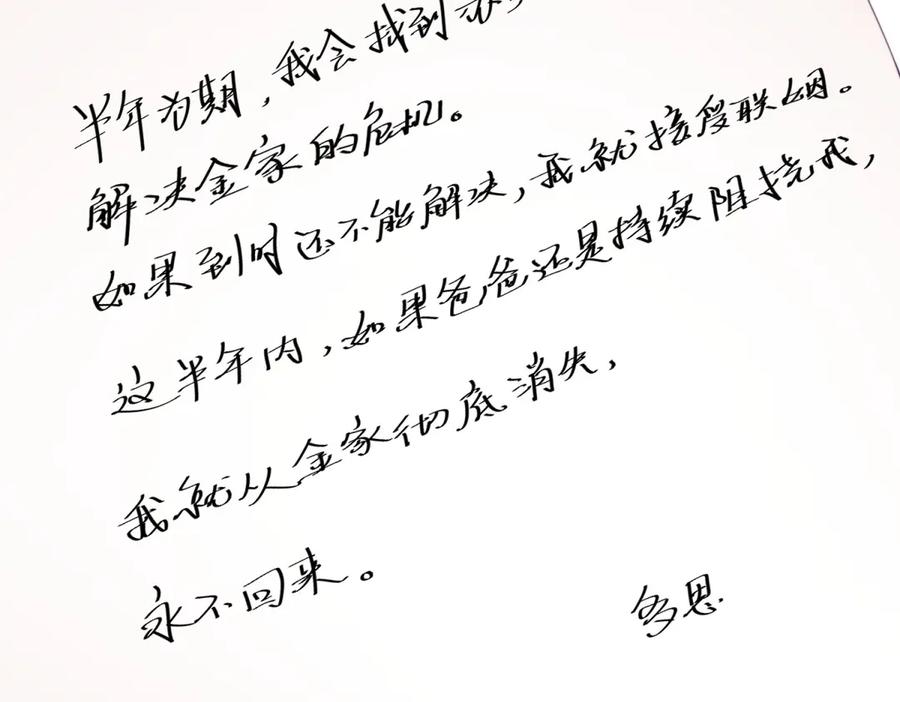 半年为期，我会找到
解决金家的危机。
如果到时还不能解决，我就接受联姻。
这半年内，如果爸爸还是持续阻挠我，
我就从金家彻底消失，
永不回来。
多恩